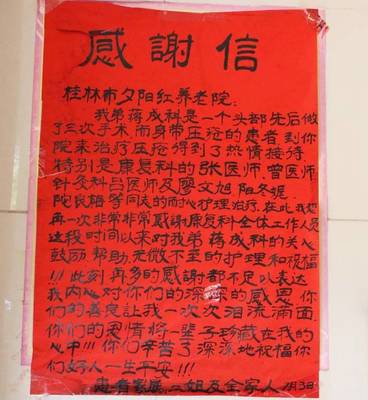 感謝信
桂林市夕阳红养老院：
我弟蒋成科是一个头部先后做
了三次手术而身带压疮的患者到你
院来治疗压疮得到了热情接待
特别是康复科的张医师、曾医师
针灸科吕医师及廖文旭、阳冬妮、
阳良梅等同志的耐心护理治疗.在此我
再一次非常非常感謝康复科全体工作人员
这段时间以来对我弟蒋成科的关心
鼓励帮助.无微不至的护理和祝福
!!!此刻再多的感謝都不足以表达
我内心对你们的深深的感恩你
们的善良让我一次次泪流满面
你们的恩情将一辈子珍藏在我的
心中!!!你们辛苦了深深地祝福你
们好人一生平安!!!
患者家属二姐及全家人 月3日